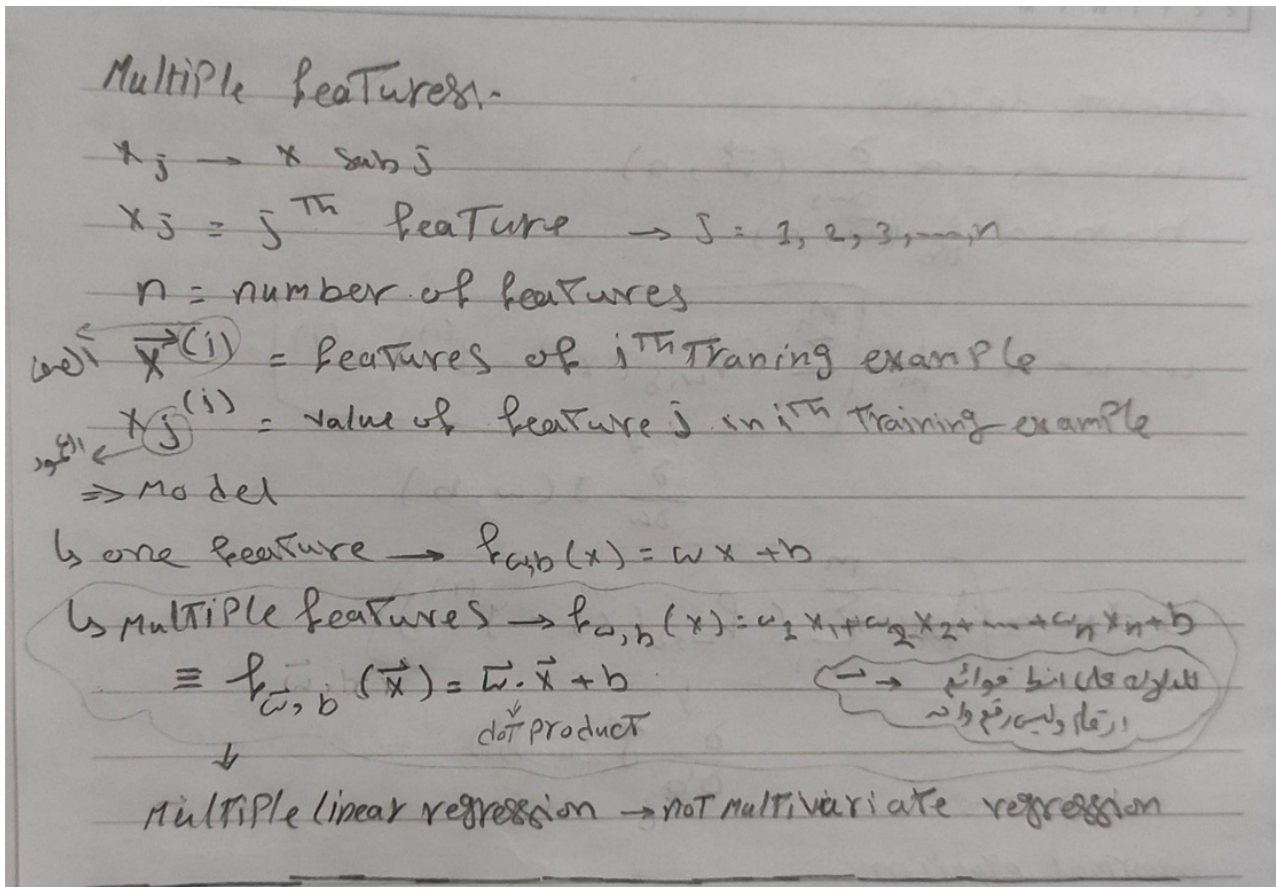 Multiple features:-
x_j → x sub j
x_j = j^Th feature → j = 1, 2, 3, ..., n
n = number of features
الصف x⃗^(i) = features of i^Th Traning example
العمود x_j^(i) = value of feature j in i^Th Training example
⇒ Model
↳ one feature → f_w,b (x) = w x + b
↳ Multiple features → f_w,b (x) = w_1 x_1 + w_2 x_2 + ... + w_n x_n + b
≡ f_w⃗,b (x⃗) = w⃗ . x⃗ + b
dot product
→ للدلالة على انها قوائم
ارقام وليس رقم واحد
↓
Multiple linear regression → not multivariate regression